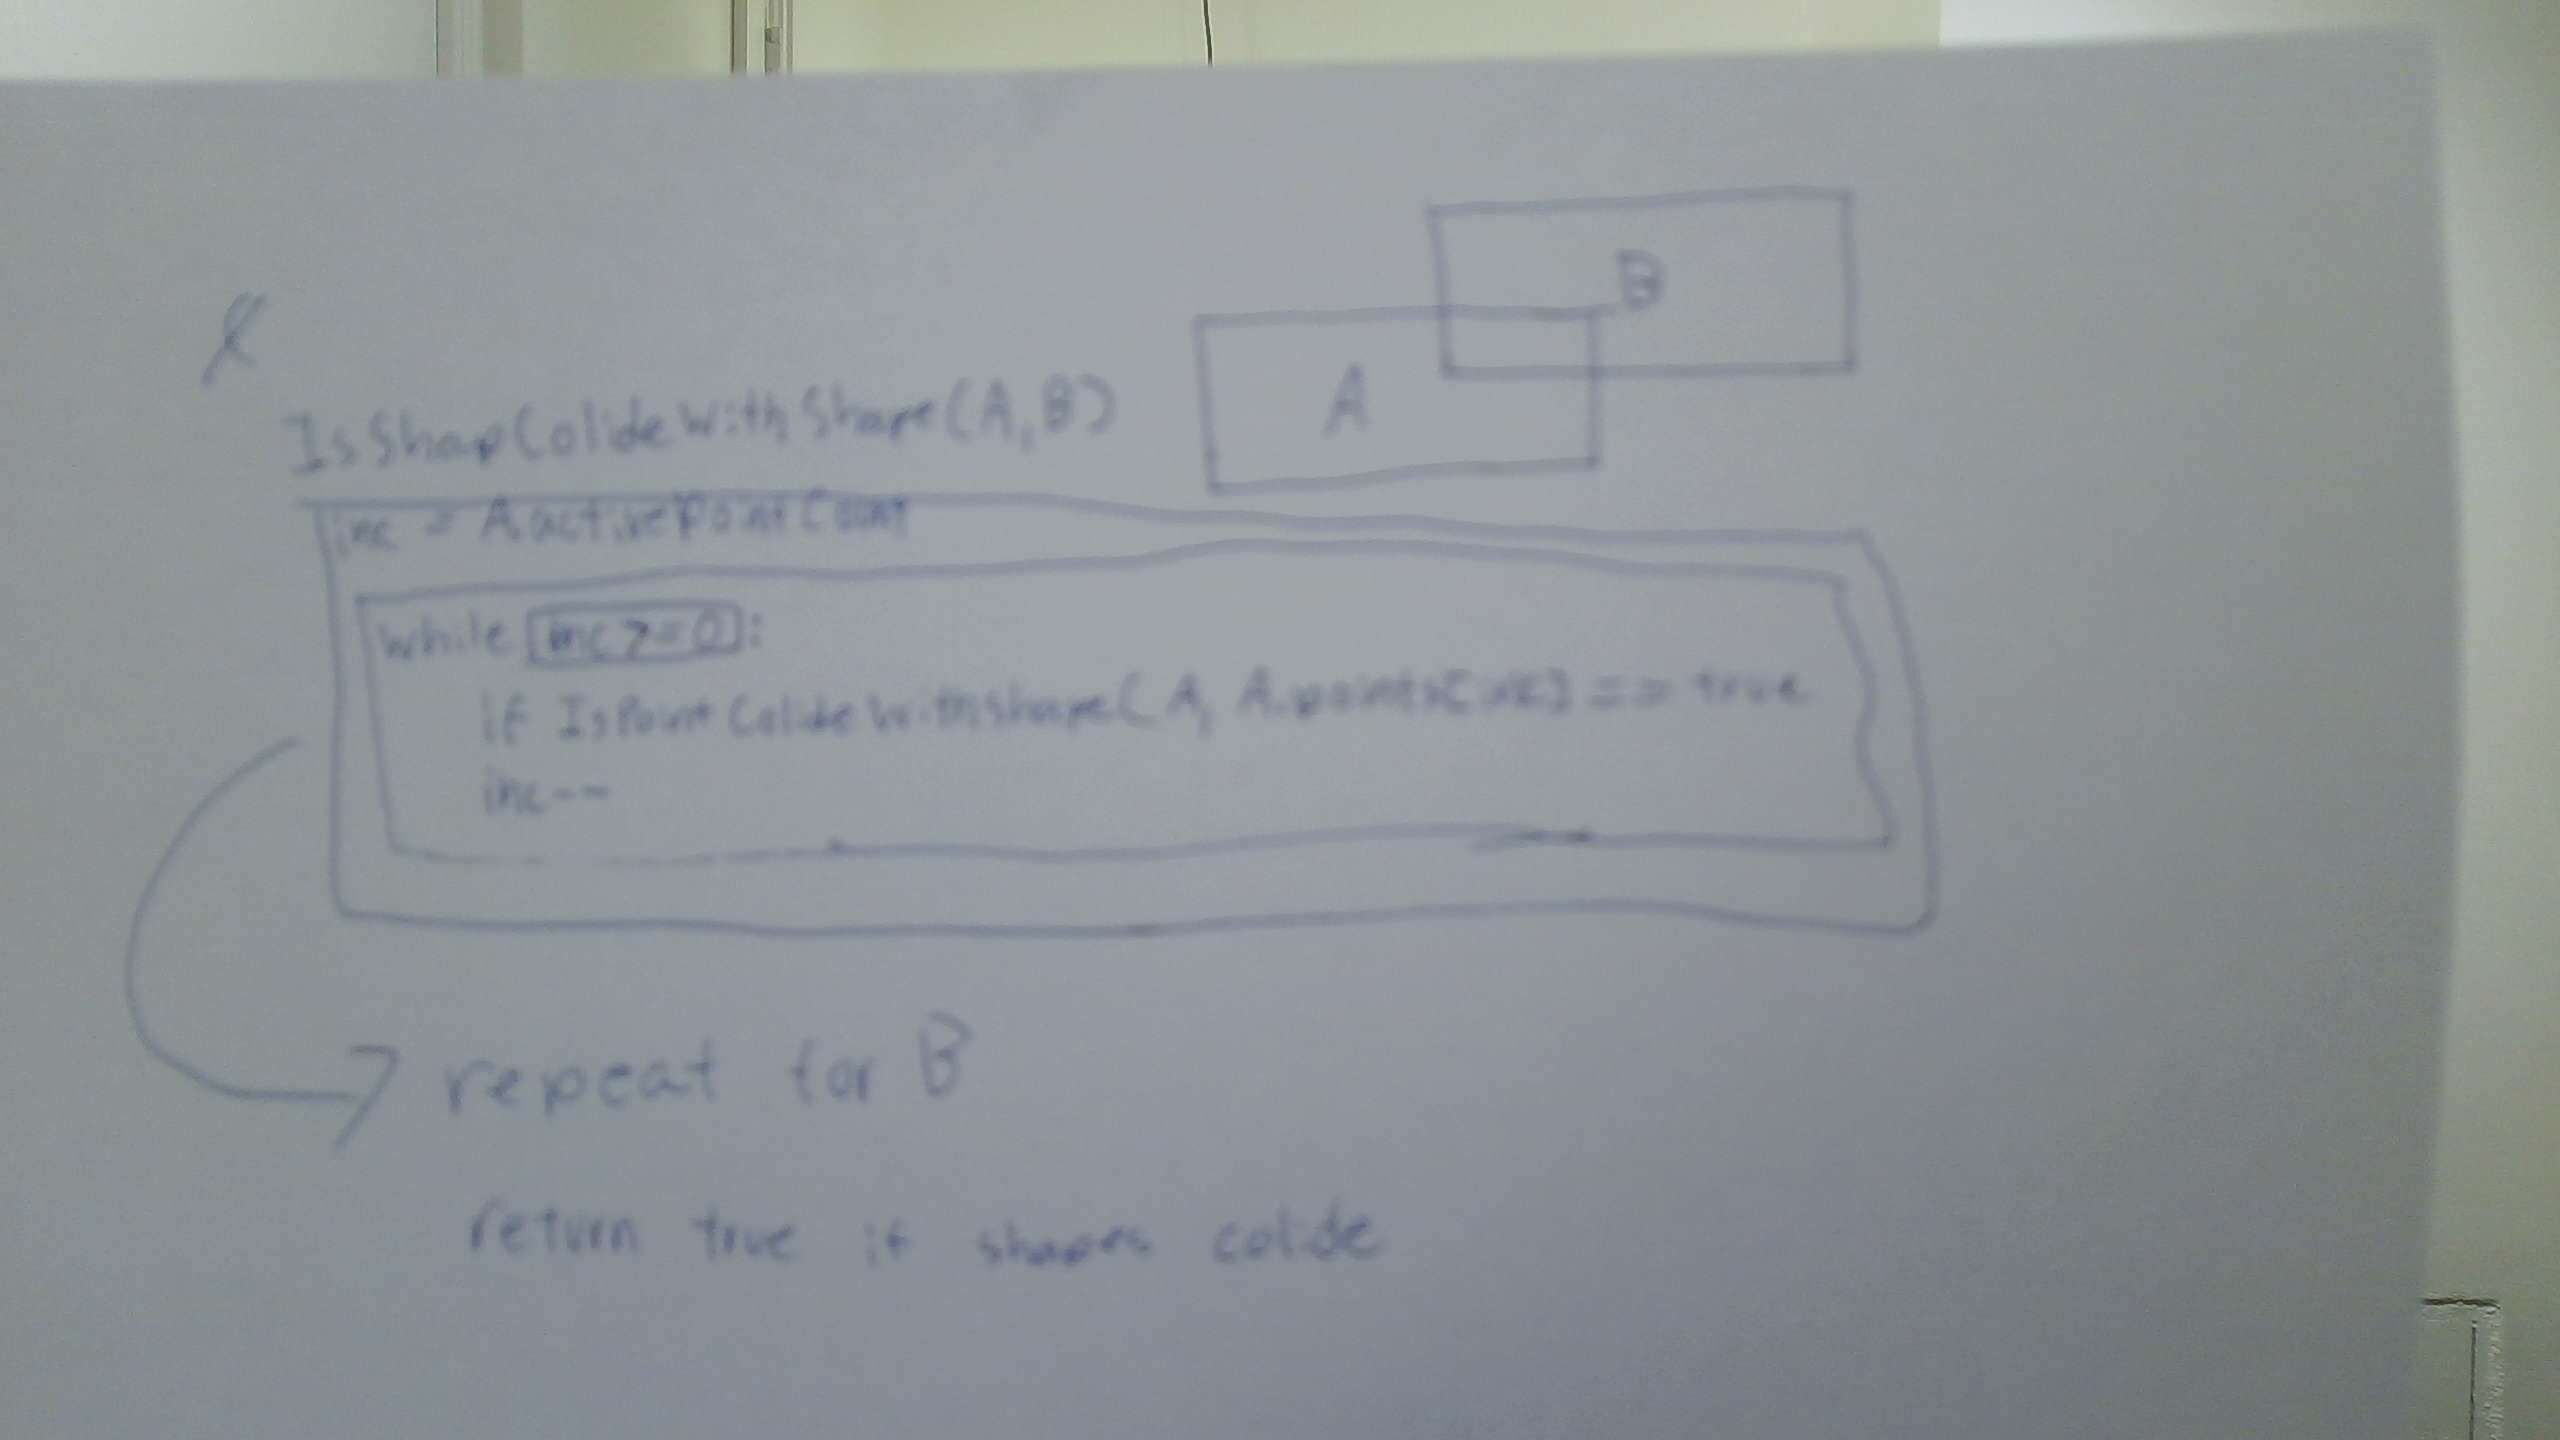 IsShapColideWithShape(A,B)
B
A
inc = A.activePointCount
while inc >= 0:
if IsPointColideWithShape(A, A.points[inc] == true
inc--
repeat for B
return true if shapes colide